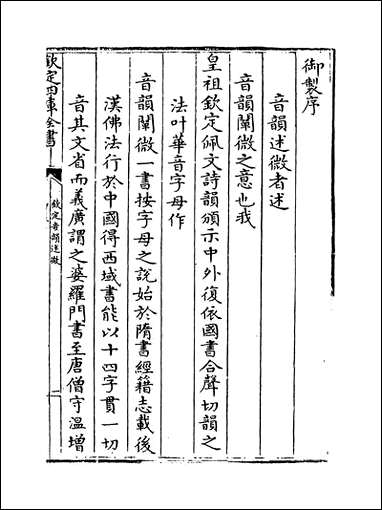 御製序
音韻述微者述
音韻闡微之意也我
皇祖欽定佩文詩韻頒示中外復依國書合聲切韻之
法叶華音字母作
音韻闡微一書按字母之說始於隋書經籍志載後
漢佛法行於中國得西域書能以十四字貫一切
音其文省而義廣謂之婆羅門書至唐僧守溫增
欽定四庫全書
欽定音韻述微
一